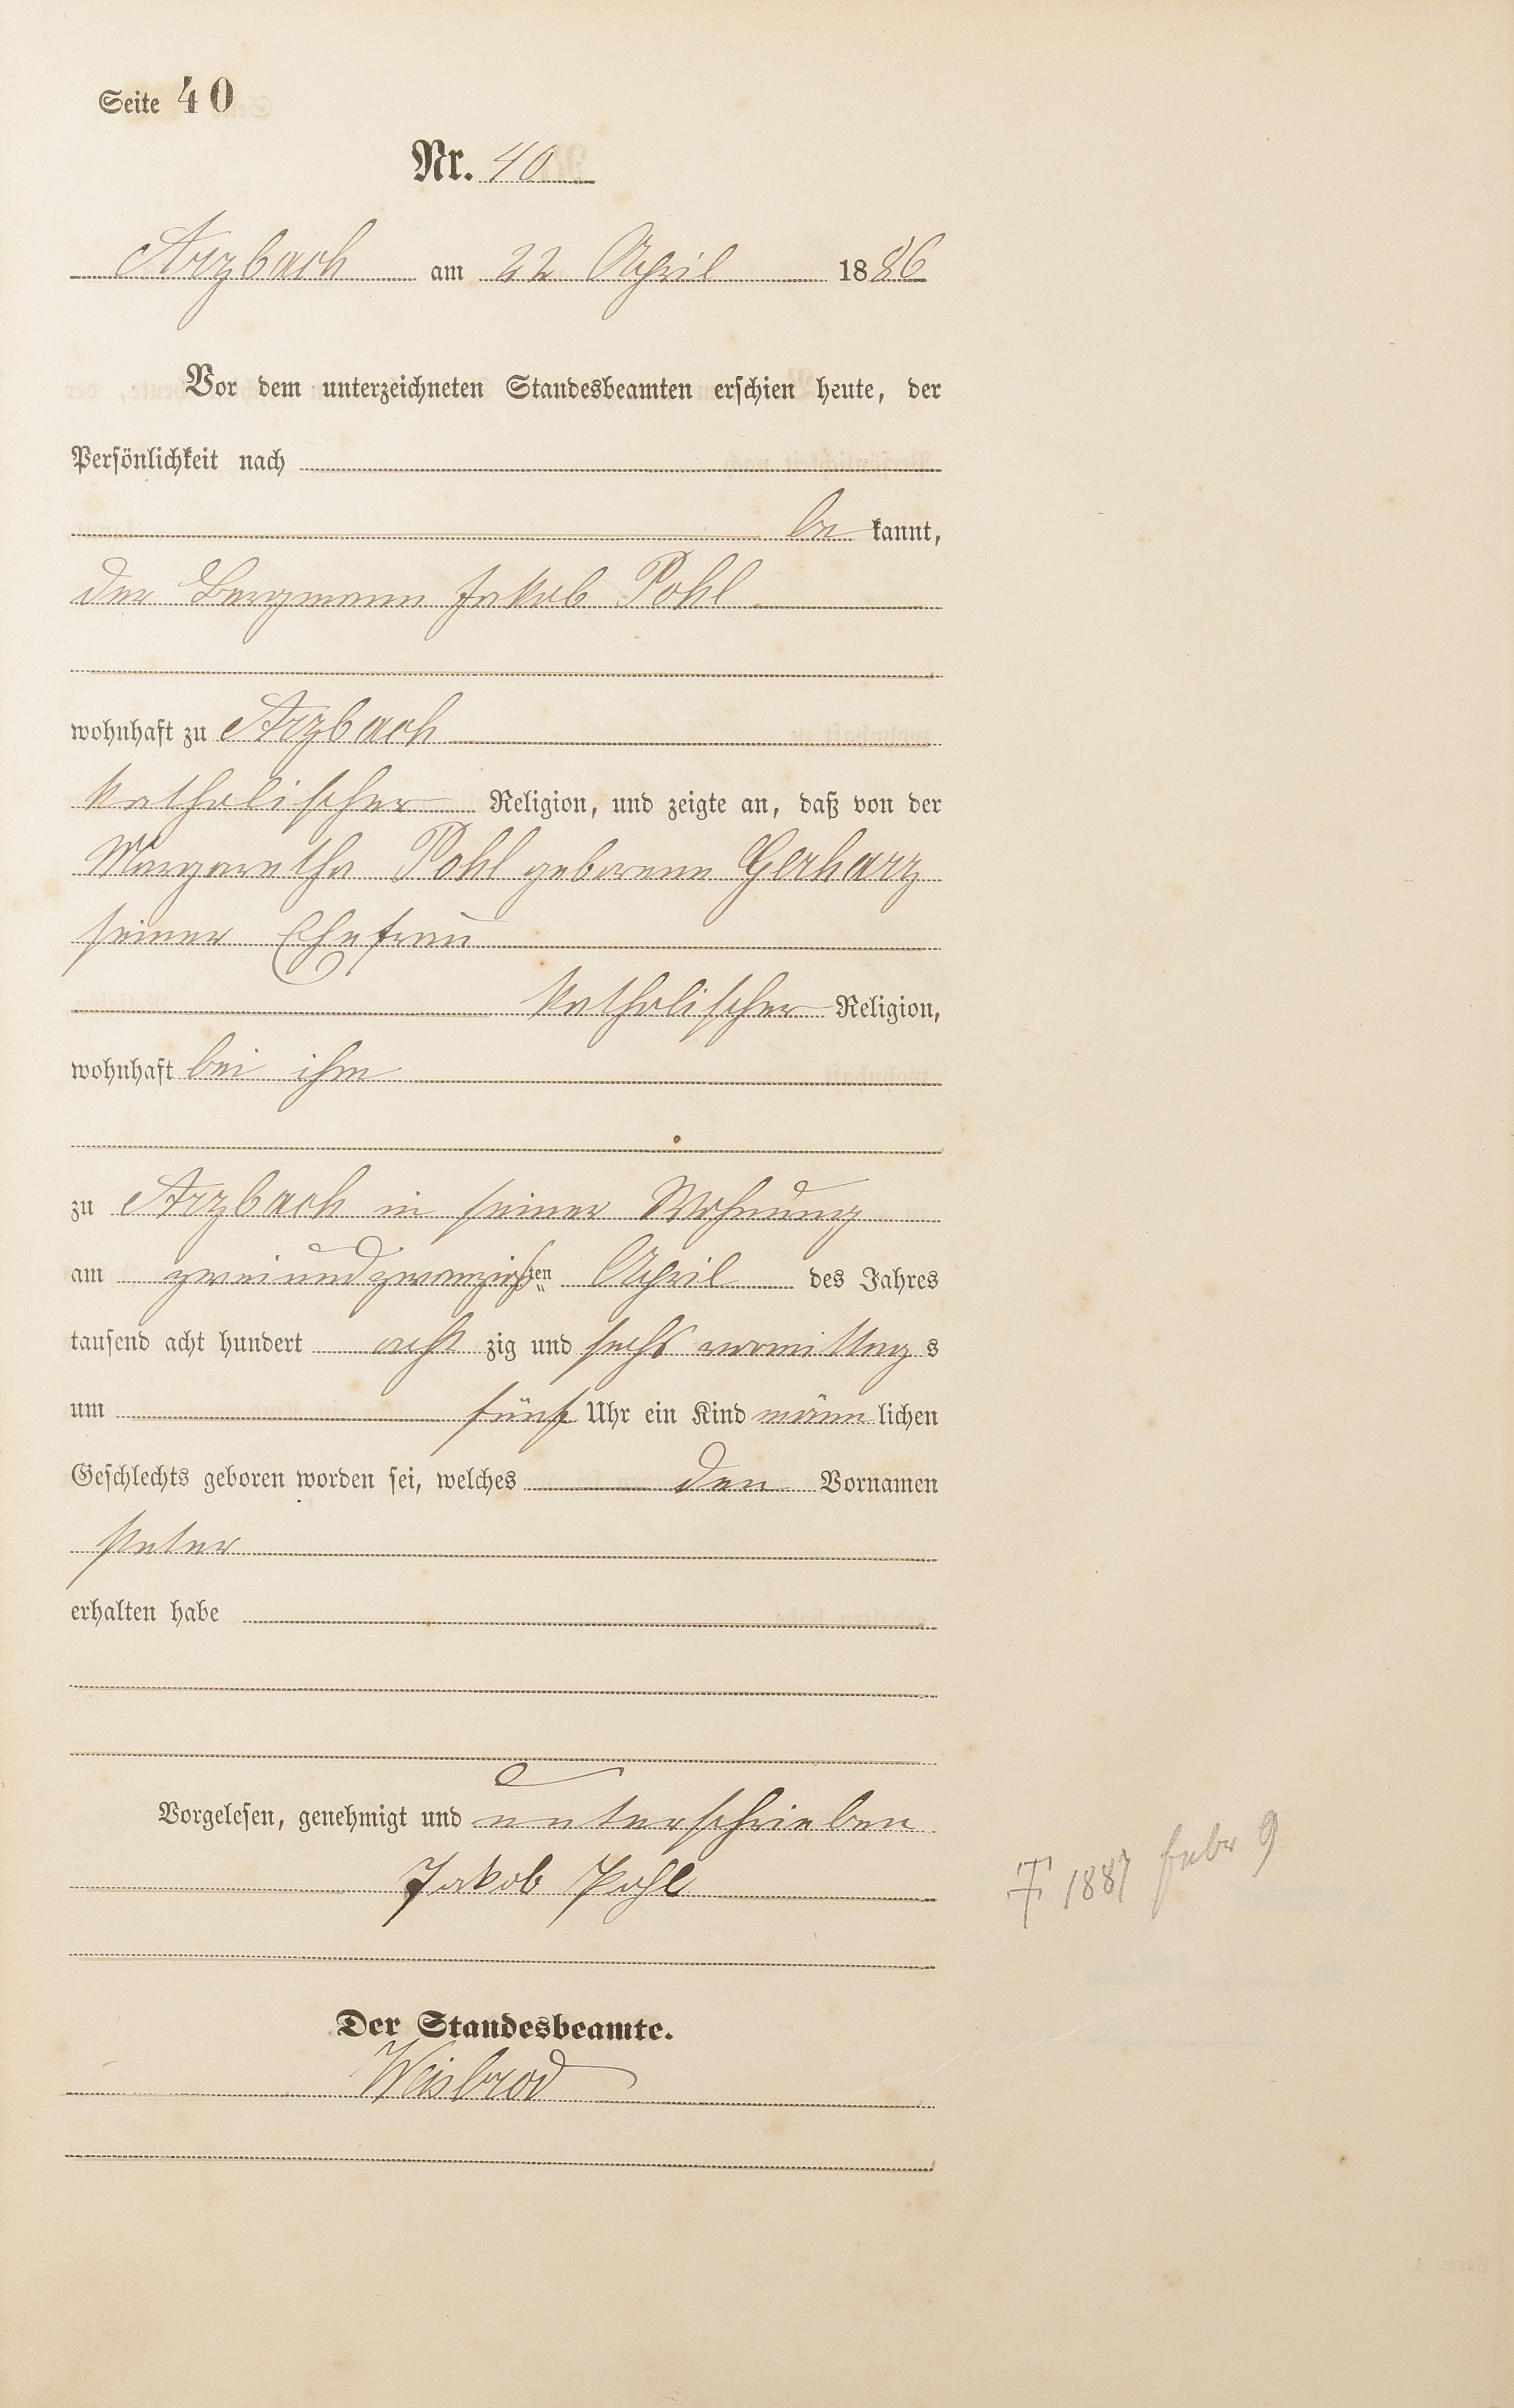 Seite 40
Nr. 40
Arzbach am 22 April 1886
Vor dem unterzeichneten Standesbeamten erschien heute, der
Persönlichkeit nach
be kannt,
der Bergmann Jakob Pohl
wohnhaft zu Arzbach
katholischer Religion, und zeigte an, daß von der
Margaretha Pohl geborene Gerharz
seiner Ehefrau
katholischer Religion,
wohnhaft bei ihm
zu Arzbach in seiner Wohnung
am zweiundzwanzigsten April des Jahres
tausend acht hundert acht zig und sechs vormittag s
um fünf Uhr ein Kind männ lichen
Geschlechts geboren worden sei, welches den Vornamen
Peter
erhalten habe
Vorgelesen, genehmigt und unterschrieben
Jakob Pohl
† 1887 febr 9
Der Standesbeamte.
Weisbrod